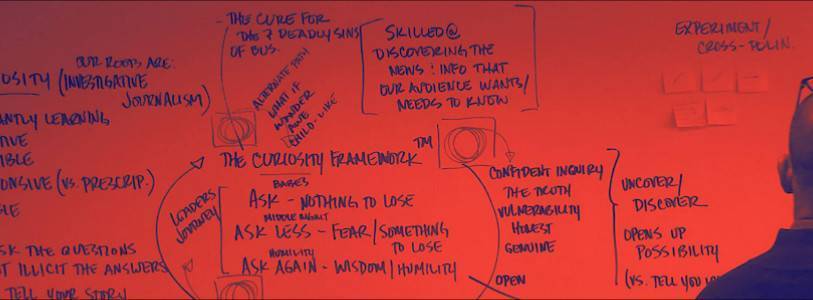 OUR ROOTS ARE:
OSITY (INVESTIGATIVE
JOURNALISM)
ANTLY LEARNING
TIVE
IBLE
ONSIVE (VS. PRESCRIP.)
SK THE QUESTIONS
T ILLICIT THE ANSWERS
TELL YOUR STORY
- THE CURE FOR
THE 7 DEADLY SINS
OF BUS.
ALTERNATE PATH
WHAT IF
WONDER
AWE
CHILD-LIKE
SKILLED@
DISCOVERING THE
NEWS : INFO THAT
OUR AUDIENCE WANTS/
NEEDS TO KNOW
EXPERIMENT/
CROSS-POLIN.
THE CURIOSITY FRAMEWORK TM
LEADERS
JOURNEY
BABES
ASK - NOTHING TO LOSE
MIDDLE MGMT
ASK LESS - FEAR/SOMETHING
TO LOSE
HUMILITY
ASK AGAIN - WISDOM/HUMILITY
CONFIDENT INQUIRY
THE TRUTH
VULNERABILITY
HONEST
GENUINE
OPEN
UNCOVER/
DISCOVER
OPENS UP
POSSIBILITY
(VS. TELL YOU